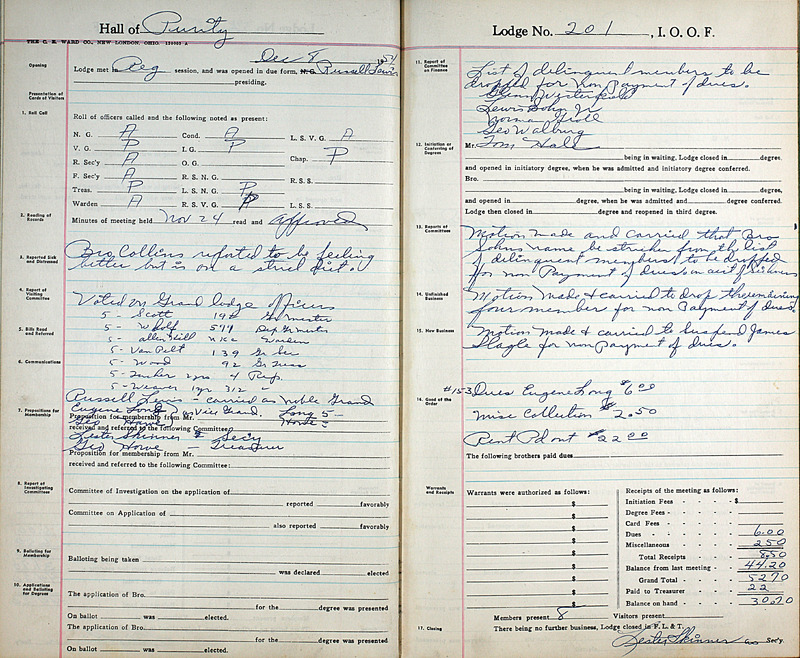 Hall of Purity
THE C. E. WARD CO., NEW LONDON, OHIO.
Dec 8 1954
Opening
Lodge met in Reg session, and was opened in due form, N.G. Russell Lewis
presiding.
Presentation of Cards of Visitors
1. Roll Call
Roll of officers called and the following noted as present:
N. G. A Cond. A L. S. V. G. A
V. G. P I. G. P Chap. P
R. Sec'y A O. G.
F. Sec'y A R. S. N. G. R. S. S.
Treas. P L. S. N. G. P
Warden A R. S. V. G. P L. S. S.
2. Reading of Records
Minutes of meeting held Nov 24 read and approved
3. Reported Sick and Distressed
Bro Collins reported to be feeling
better but is on a strict diet.
4. Report of Visiting Committee
Voted on Grand lodge officers
5 - Scott 194 Gr master
5. Bills Read and Referred
5 - Wholf 579 Dep Gr master
5 - Allen Hill Warden
5 - Van Pelt 139 Gr Sec
6. Communications
5 - Wood 92 Gr Treas
5 - 2 yrs - 4 Rep.
5 - Weaver 1 yr 312 "
Russell Lewis - carried as Noble Grand
7. Propositions for Membership
Eugene Long as Vice Grand. Long 5 -
Proposition for membership from Mr. Geo Howe
received and referred to the following Committee:
Lester Skinner Sec'y
Geo Howe Treasurer
Proposition for membership from Mr.
received and referred to the following Committee:
8. Report of Investigating Committees
Committee of Investigation on the application of
reported favorably
Committee on Application of
also reported favorably
9. Balloting for Membership
Balloting being taken
was declared elected
10. Applications and Balloting for Degrees
The application of Bro.
for the degree was presented
On ballot was elected.
The application of Bro.
for the degree was presented
On ballot was elected.
Lodge No. 201, I. O. O. F.
11. Report of Committee on Finance
List of delinquent members to be
dropped for non Payment of dues.
Glenn Westerfield
Lewis John Jr
Norma
Geo Walburg
12. Initiation or Conferring of Degrees
Mr. Tom Hall
being in waiting, Lodge closed in degree,
and opened in initiatory degree, when he was admitted and initiatory degree conferred.
Bro.
being in waiting, Lodge closed in degree,
and opened in degree, when he was admitted and degree conferred.
Lodge then closed in degree and reopened in third degree.
13. Reports of Committees
Motion made and carried that Bro
Johns name be stricken from the list
of delinquent members to be dropped
for non Payment of dues on acct of sickness
14. Unfinished Business
Motion Made & carried to drop the remaining
four member for non Payment of dues.
15. New Business
Motion Made & carried to suspend James
Slagle for non Payment of dues.
#153 Dues Eugene Long $6.00
16. Good of the Order
Misc Collection $2.50
Rent Pd out $22.00
The following brothers paid dues
Warrants and Receipts
Warrants were authorized as follows:
$
$
$
$
$
$
$
$
$
Receipts of the meeting as follows:
Initiation Fees $
Degree Fees
Card Fees
Dues 6.00
Miscellaneous 2.50
Total Receipts 8.50
Balance from last meeting 44.20
Grand Total 52.70
Paid to Treasurer 22
Balance on hand 30.70
Members present 8 Visitors present
17. Closing
There being no further business, Lodge closed in F. L. & T.
Lester Skinner Sec'y.